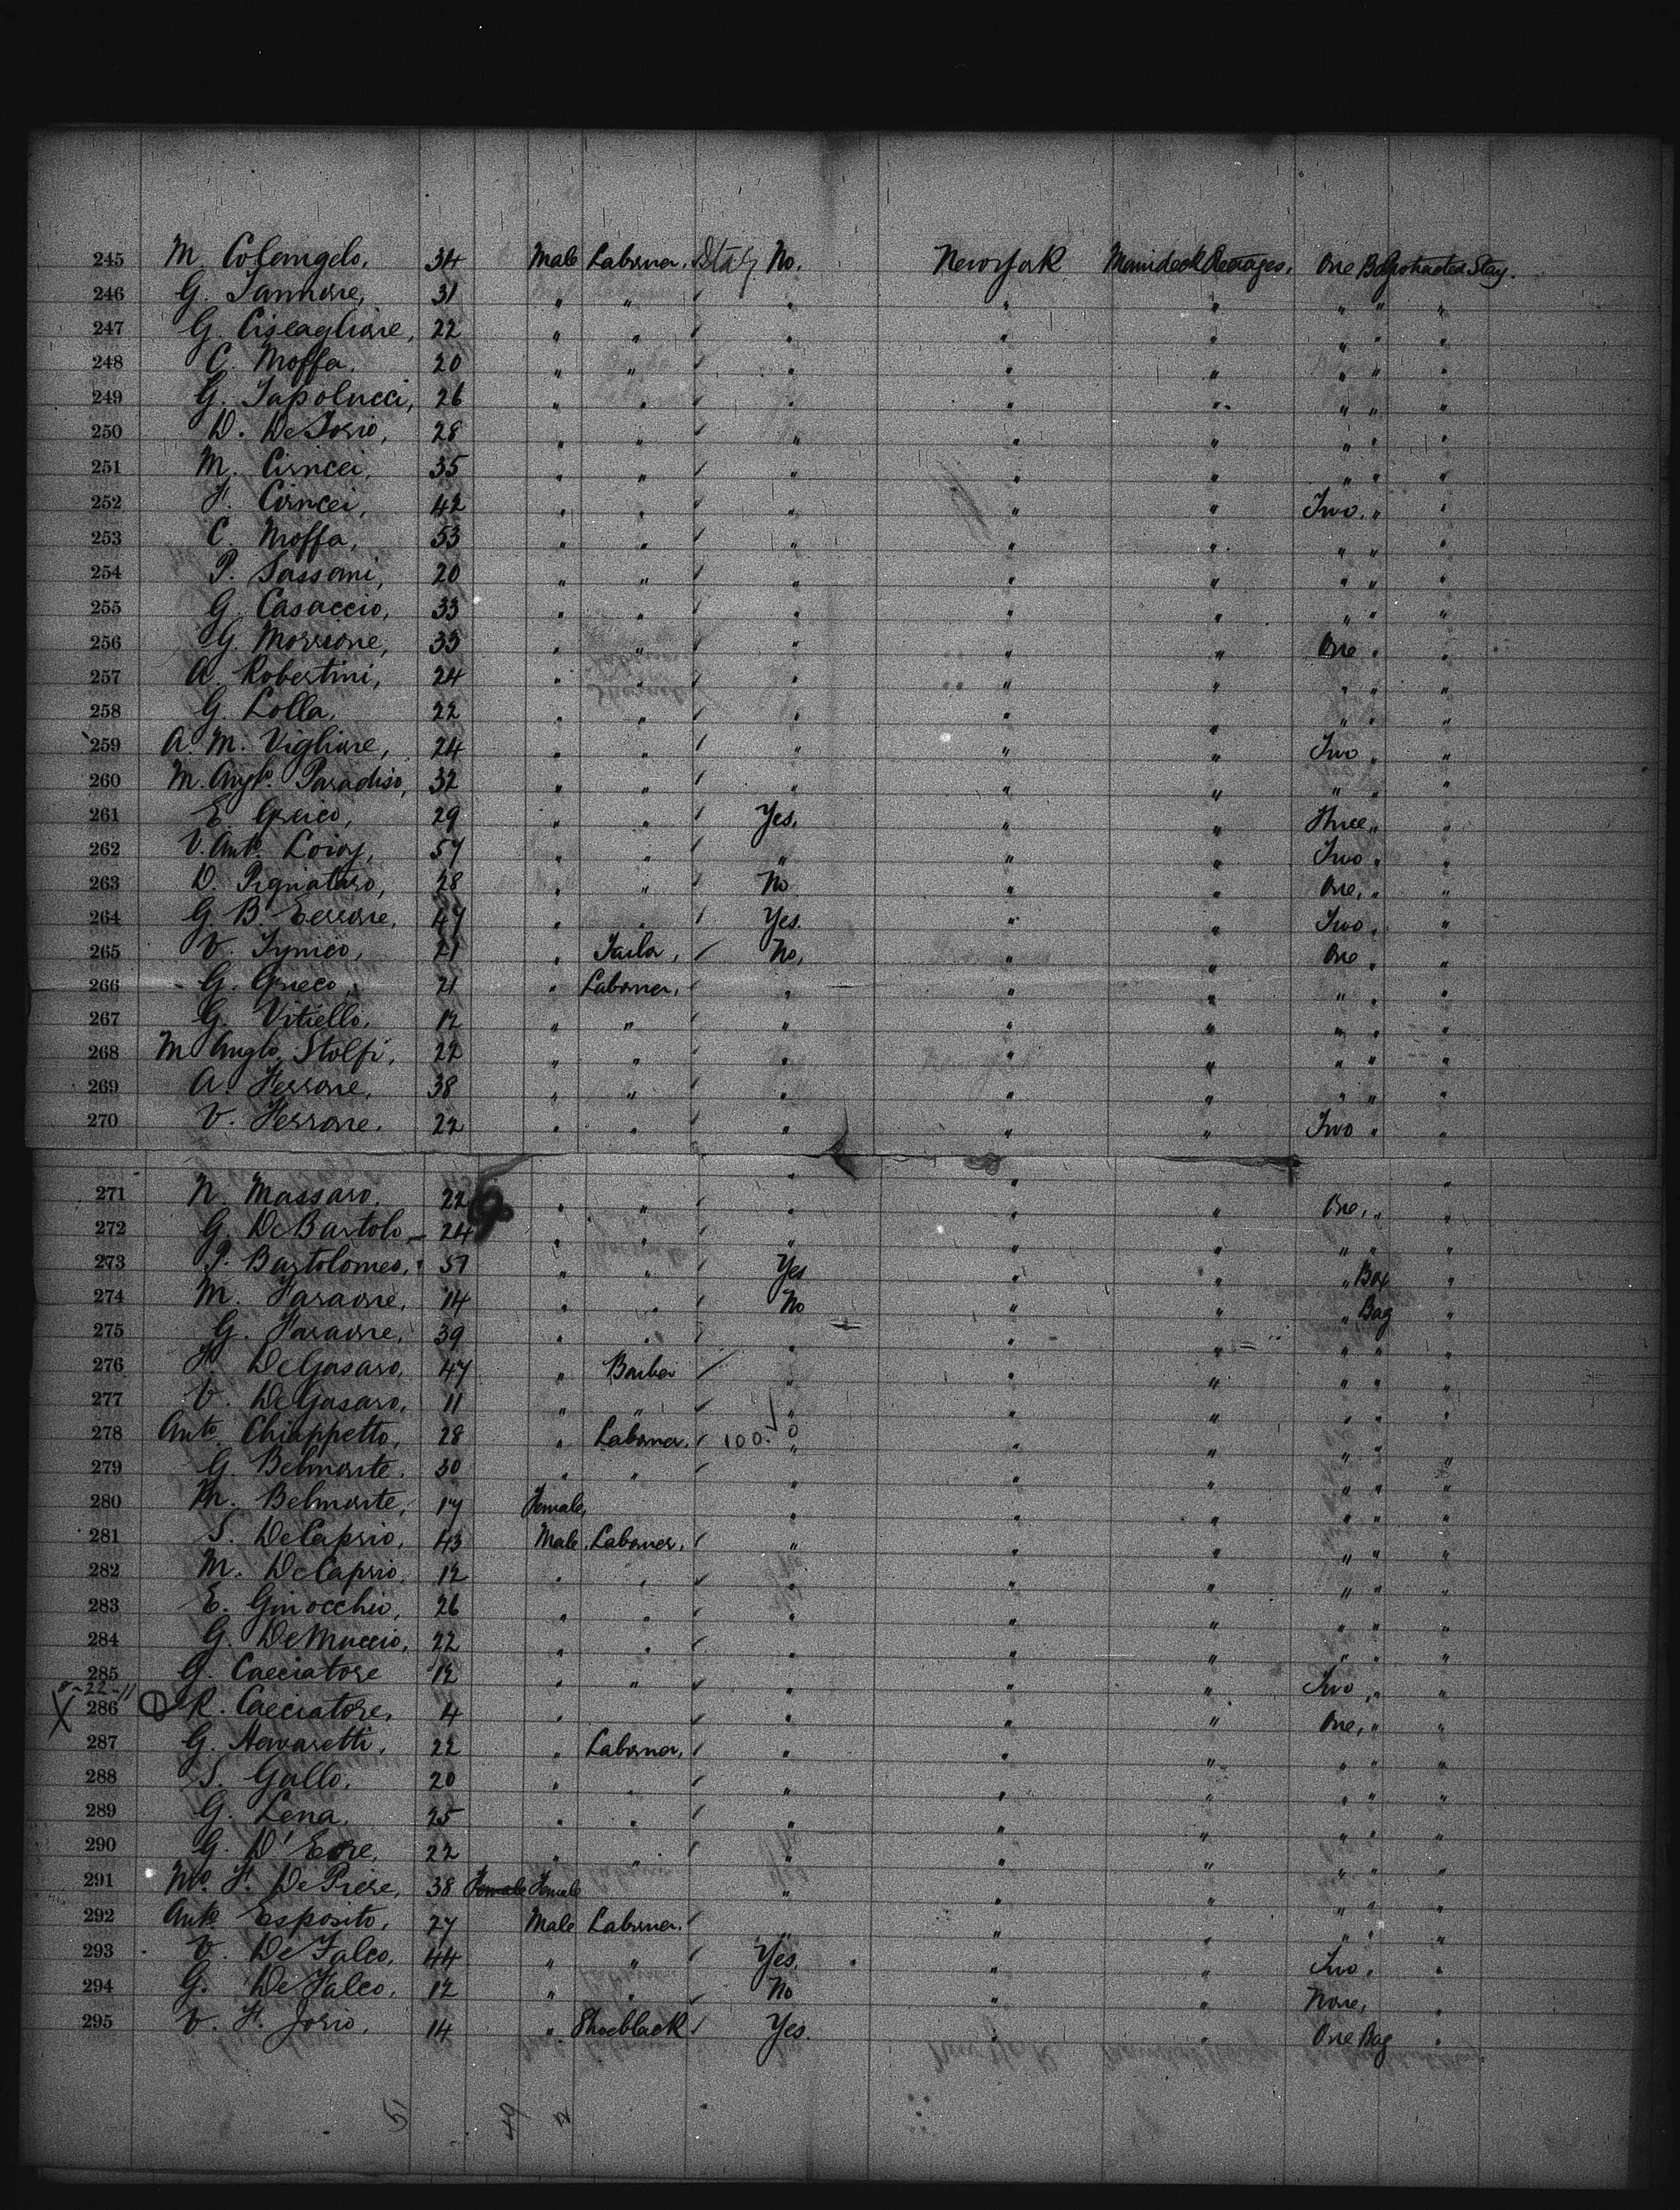 245 M. Colangelo, 34 Male Laborer, Italy No. New York Main deck Steerages, One Bag Protracted Stay.
246 G. Iannone, 31 " " " " " " " "
247 G. Ciseaglione, 22 " " " " " " " "
248 C. Moffa, 20 " " " " " " " "
249 G. Iapolucci, 26 " " " " " " " "
250 D. DeIorio, 28 " " " " " " " "
251 M. Cirncei, 35 " " " " " " " "
252 F. Cirncei, 42 " " " " " Two " "
253 C. Moffa, 53 " " " " " " " "
254 P. Sassani, 20 " " " " " " " "
255 G. Casaccio, 33 " " " " " " " "
256 G. Morrione, 33 " " " " " One " "
257 A. Robertini, 24 " " " " " " " "
258 G. Lolla, 22 " " " " " " " "
259 A. M. Viglione, 24 " " " " " Two " "
260 M. Anglo. Paradiso, 32 " " " " " " " "
261 E. Greico, 29 " " Yes, " " Three " "
262 V. Anto. 57 " " " " " Two " "
263 D. Pignataro, 28 " " No " " One, " "
264 G. B. Errore, 47 " " Yes. " " Two " "
265 V. 21 " Tailor, No, " " One " "
266 G. Greco, 21 " Laborer, " " " " " "
267 G. Vitiello, 12 " " " " " " " "
268 M. Anglo. Stolfi, 22 " " " " " " " "
269 A. Ferrone, 38 " " " " " " " "
270 V. Ferrone, 22 " " " " " Two " "
271 N. Massaro, 22 " " " " " One, " "
272 G. DeBartolo, 24 " " " " " " " "
273 P. Bartolomeo, 57 " " Yes " " " Box "
274 M. Faraone, 14 " " No " " " Bag "
275 G. Faraone, 39 " " " " " " " "
276 F. DeGasaro, 47 " Barber " " " " " "
277 V. DeGasaro, 11 " " " " " " " "
278 Anto. Chiappetto, 28 " Laborer, 100. " " " " " "
279 G. Belmonte, 30 " " " " " " " "
280 M. Belmonte, 17 Female, " " " " " "
281 S. DeCaprio, 43 Male Laborer, " " " " " "
282 M. DeCaprio, 12 " " " " " " " "
283 E. Ginocchio, 26 " " " " " " " "
284 G. DeMuccio, 22 " " " " " " " "
285 G. Cacciatore 12 " " " " " Two " "
8-22-11
X 286 R. Cacciatore, 4 " " " " One, " "
287 G. 22 " Laborer, " " " " " "
288 S. Gallo, 20 " " " " " " " "
289 G. Lena, 25 " " " " " " " "
290 G. D'Eore, 22 " " " " " " " "
291 Ma. F. DePiere, 38 Female Female " " " " " "
292 Anto. Esposito, 27 Male Laborer, " " " " " "
293 V. DeFalco, 44 " " Yes, " " Two, "
294 G. DeFalco, 12 " " No " " None, "
295 V. F. Jorio, 14 " Shoeblack Yes. " " One Bag "